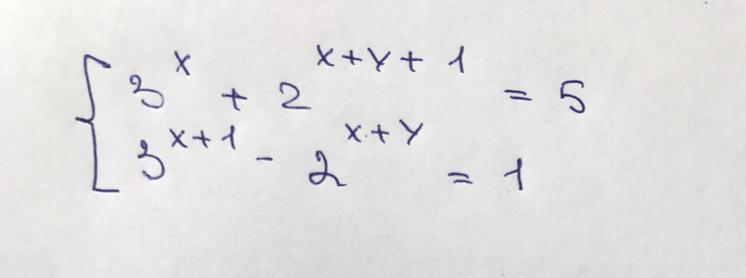 3^(x) + 2^(x+y+1) = 5
3^(x+1) - 2^(x+y) = 1